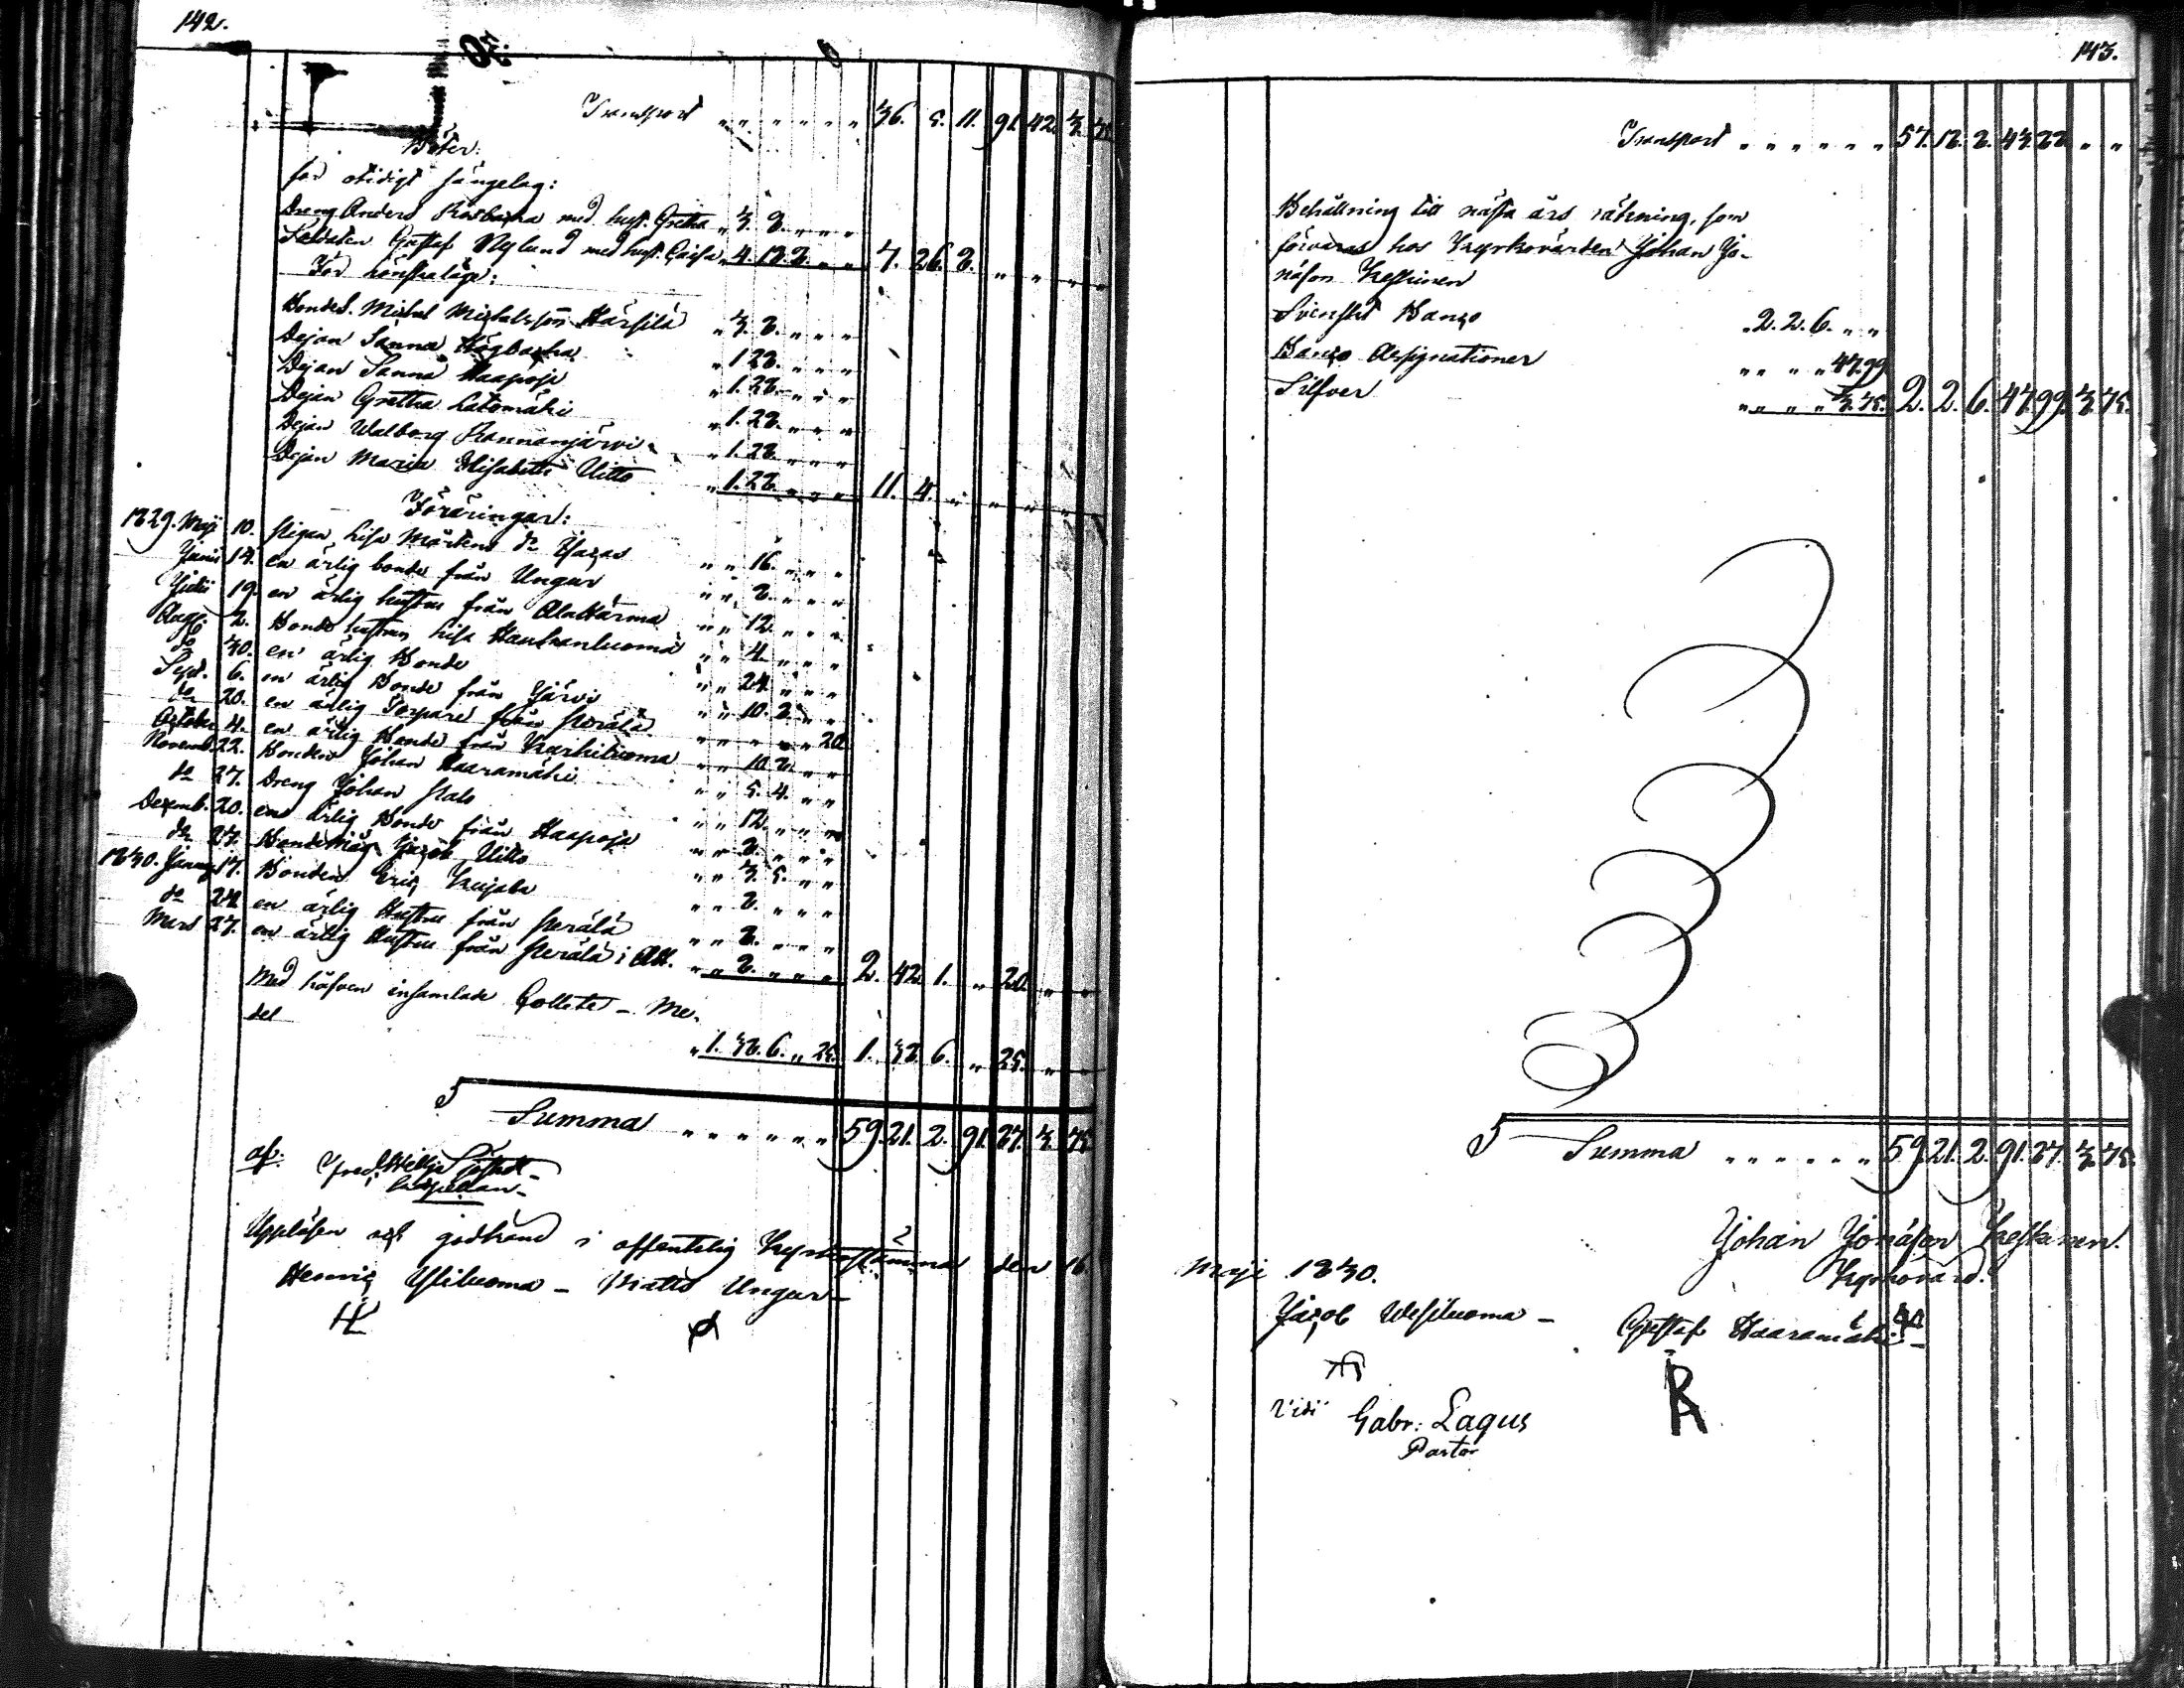 142.
Transport " " " " " " 36. 5. 11. 91. 42. 3. 75
Böter:
för otidigt sängelag:
Dreng Anders Rosbacka med hust. Gretha " 3. 8. " " "
Soldaten Gustaf Nylund med hust. Caisa " 4. 18. 8. " " 7. 26. 8. " " " "
För lönskaläge:
Bondes. Michel Michelsson Härsilä " 3. 8. " " "
Dejan Sanna Högbacka " 1. 28. " " "
Dejan Sanna Haapoja " 1. 28. " " "
Dejan Gretha Latomäki " 1. 28. " " "
Dejan Walborg Kannanjärvi " 1. 28. " " "
Dejan Maria Elisabeth Uitto " 1. 28. " " " 11. 4. " " " " "
Föräringar:
1829. Maji 10. Pigan Lisa Mårtens dr " " 16. " " "
Junii 14. en ärlig bonde från Ungar " " 8. " " "
Julii 19. en ärlig hustru från Alahärmä " " 12. " " "
Aug. 2. Bonde hustrun Lisa Kauhanluoma " " 4. " " "
do 30. en ärlig Bonde " " 24. " " "
Sept. 6. en ärlig Bonde från Järvi " " 10. 8. " "
do 20. en ärlig Torpare från Perälä " " " " " 20
October 4. en ärlig Bonde från Karhiluoma " " 10. 8. " "
Novemb. 22. Bonden Johan Haaramäki " " 5. 4. " "
do 27. Dreng Johan Palo " " 12. " " "
Decemb. 20. en ärlig Bonde från Haapoja " " 8. " " "
do 27. Bonde Måg Jacob Uitto " " 3. 5. " "
1830. Janua 17. Bonden Eric Kujala " " 8. " " "
do 24. en ärlig Hustru från Perälä " " 8. " " "
Mars 27. en ärlig Hustru från Perälä i Alt. " " 8. " " " 2. 42. 1. " 20. " "
Med håfven insamlade Collete - Me-
del " 1. 38. 6. " 25. 1. 38. 6. " 25. " "
Summa " " " " " " 59. 21. 2. 91. 87. 3. 75
af.
Capellan
Uppläsen och godkänd i offentelig Kyrkostämma den 16
Henric Yliluoma - Matts Ungar -
143.
Transport " " " " " " 57. 18. 8. 43. 88. " "
Behållning till nästa års räkning, som
förvaras hos Kyrkovärden Johan Jo-
näson Keskinen
Svenskt Banco " 2. 2. 6. " "
Banco Assignationer " " " " 47.99
Silfver " " " " 3.75. 2. 2. 6. 47.99. 3.75.
Summa " " " " " " 59. 21. 2. 91. 87. 3. 75.
Johan Jonäson Keskinen.
Kyrkovärd.
Maji 1830.
Jacob Wesiluoma - Gustaf Haaramäki -
Vidi Gabr: Lagus
Pastor